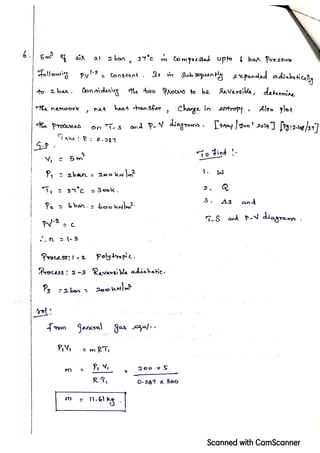 6. 5m³ of air at 2 bar, 27°c is compressed upto 6 bar pressure
following PV^1.3 = constant. It is subsequently expanded adiabatically
to 2 bar. Considering the two process to be Reversible, determine
the network, net heat transfer, Change in entropy. Also plot
the processes on T-S and P-V diagrams.
Take: R = 0.287
G.P
To find:
V₁ = 5m³
P₁ = 2bar = 200 kN/m²
T₁ = 27°c = 300k.
P₂ = 6 bar. = 600 kN/m²
PV^1.3 = c
∴ n = 1.3
1. W
2. Q
3. ΔS and
T-S and P-V diagrams.
Process: 1-2 Polytropic.
Process: 2-3 Reversible adiabatic.
P₃ = 2 bar = 200 kN/m²
Sol:
from general gas equ/..
P₁V₁ = mRT₁
m = P₁ V₁ / R T₁ = 200 x 5 / 0.287 x 300
m = 11.61 kg.
Scanned with CamScanner